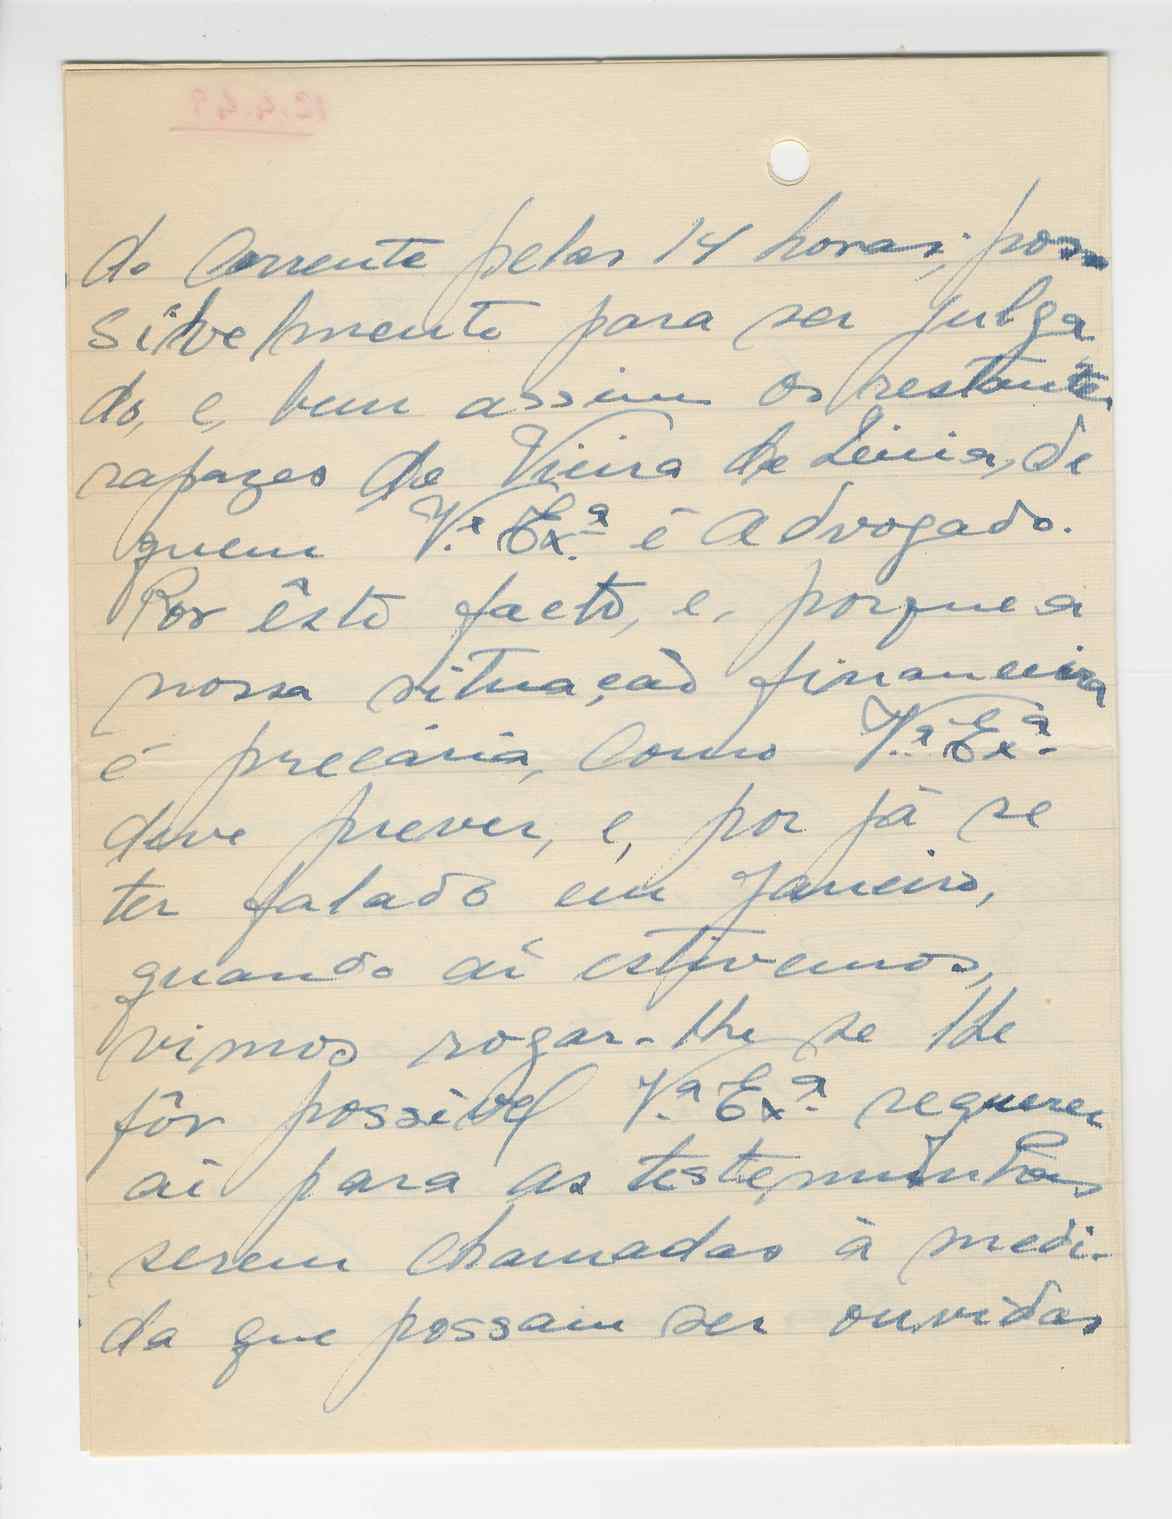 do Corrente pelas 14 horas; pos
sivelmente para ser julga
do, e, bem assim os restantes
rapazes de Vieira de Leiria, de
quem V.ª Ex.ª é Advogado.
Por êste facto, e, porque a
nossa situação financeira
é precária, como V.ª Ex.ª
deve prever, e, por já se
ter falado em Janeiro,
quando aí estivemos,
vimos rogar-lhe se lhe
fôr possivel V.ª Ex.ª requerer
aí para as testemunhas
serem chamadas à medi-
da que possam ser ouvidas